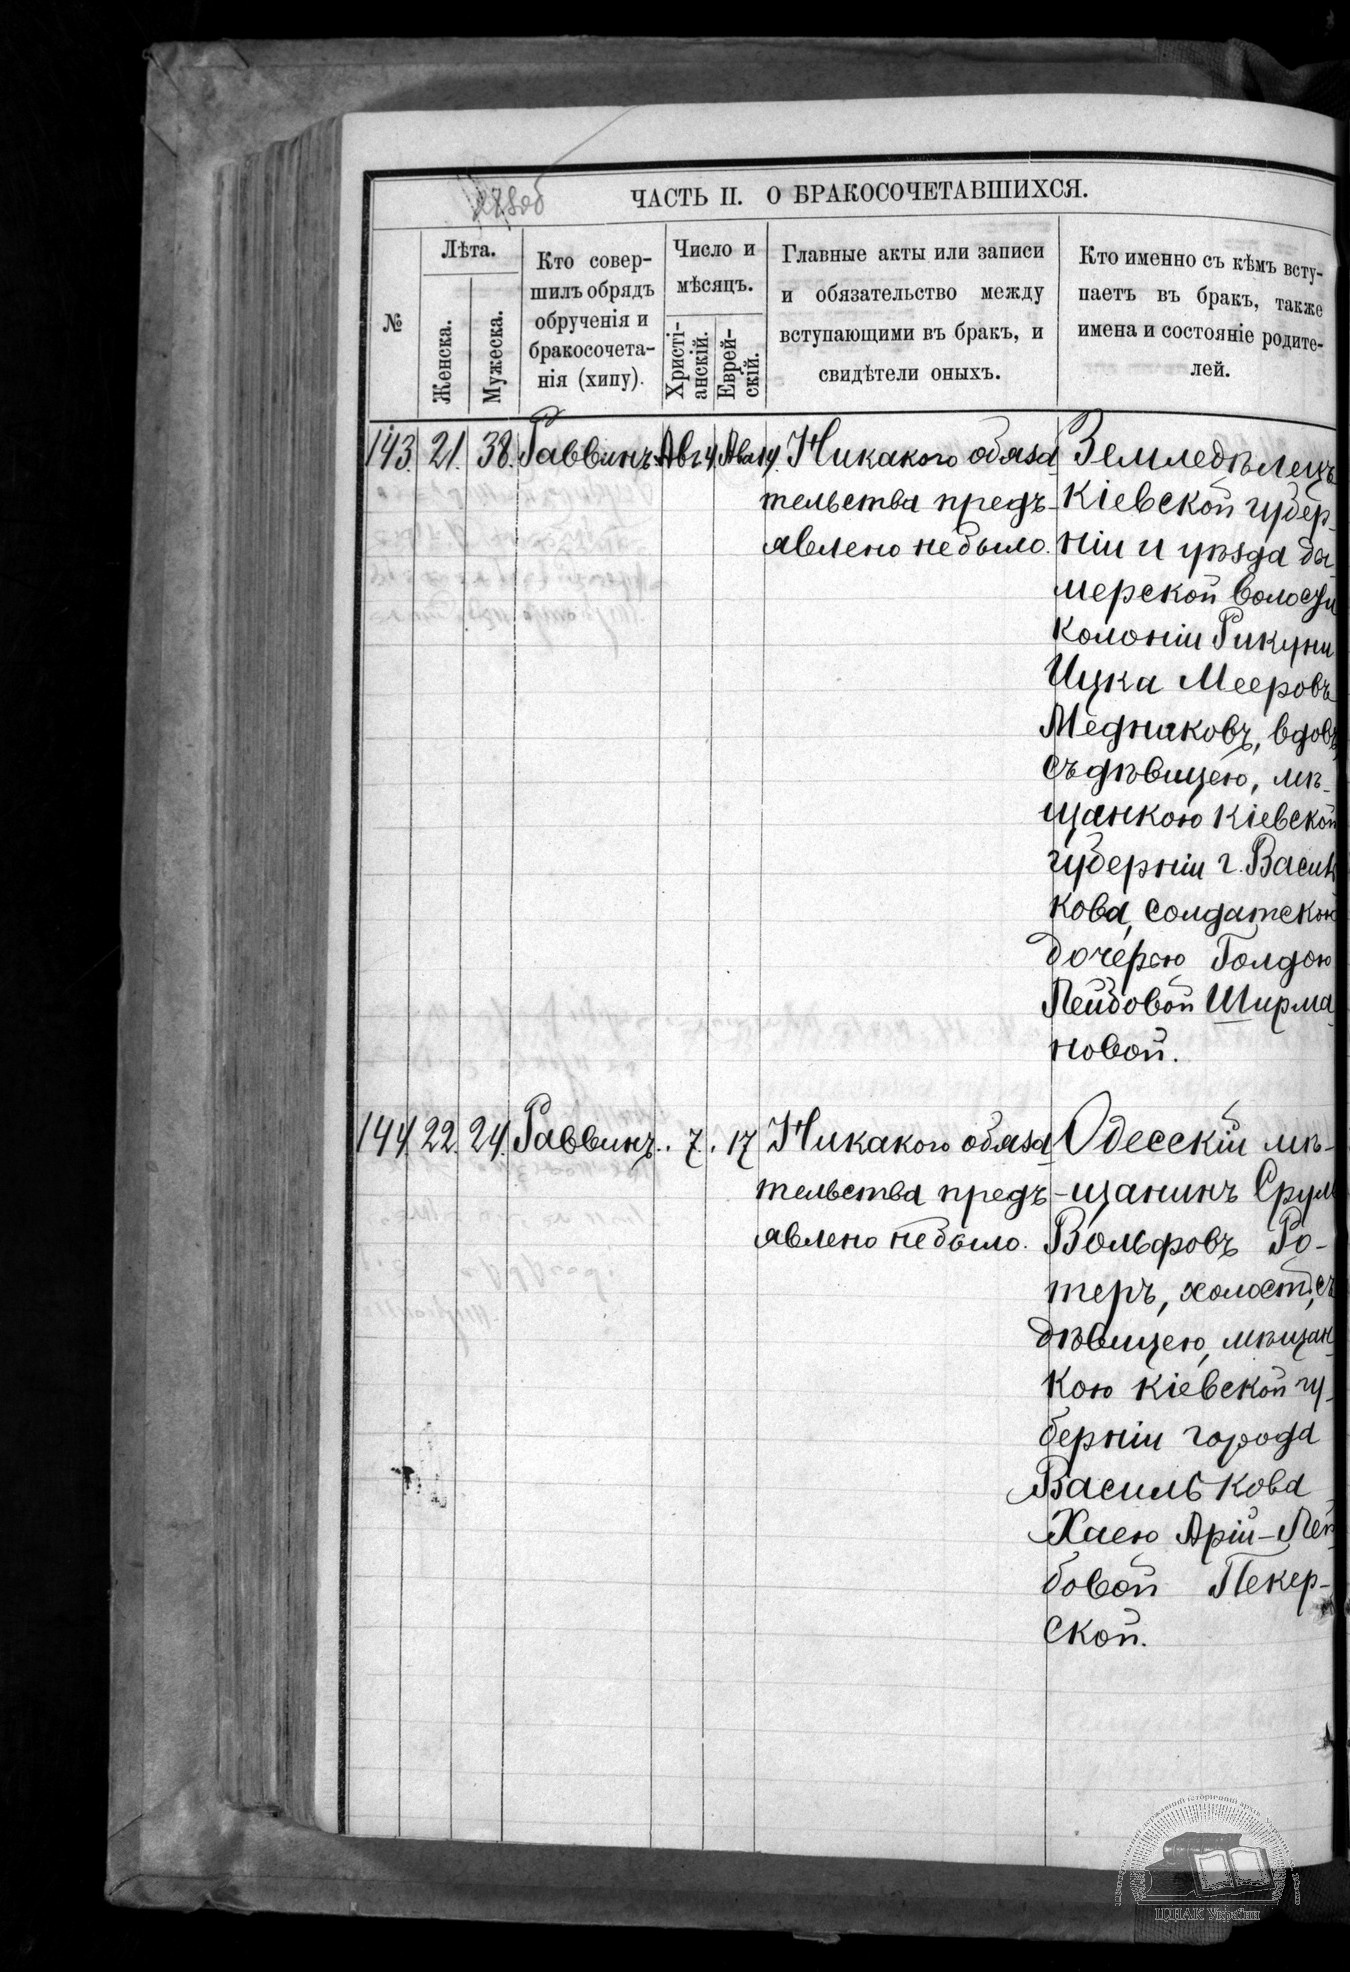 ЧАСТЬ II. О БРАКОСОЧЕТАВШИХСЯ.
№
Лѣта.
Женска.
Мужеска.
Кто совер-
шилъ обрядъ
обрученія и
бракосочета-
нія (хипу).
Число и
мѣсяцъ.
Христі-
анскій.
Еврей-
скій.
Главные акты или записи
и обязательство между
вступающими въ бракъ, и
свидѣтели оныхъ.
Кто именно съ кѣмъ всту-
паетъ въ бракъ, также
имена и состояніе родите-
лей.
143. 21. 38. Раввинъ. Авг 4. Ава 14. Никакого обяза-
тельства предъ-
явлено не было.
Земледѣлецъ
Кіевской губер-
ніи и уѣзда ды
мерской волости
колоніи Рикуни
Ицка Мееровъ
Медниковъ, вдовъ
съ дѣвицею, мѣ-
щанкою Кіевской
губерніи г. Василь
кова, солдатскою
дочерью Голдою
Лейбовой Ширма
новой.
144. 22. 24. Раввинъ. 7. 17 Никакого обяза-
тельства предъ-
явлено не было.
Одесскій мѣ-
щанинъ Сруль
Вольфовъ Ро-
теръ, холост., съ
дѣвицею, мѣщан-
кою Кіевской гу-
берніи города
Василькова
Хаею Арій-Лей
бовой Пекер-
ской.
ЦДІАК України